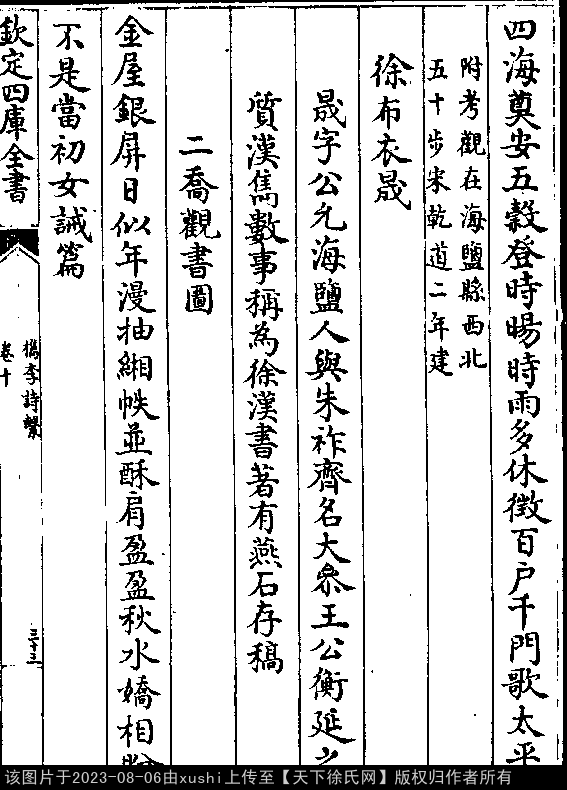 四海奠安五穀登時暘時雨多休徵百户千門歌太平
附考觀在海鹽縣西北
五十步宋乾道二年建
徐布衣晟
晟字公允海鹽人與朱祚齊名大叅王公衡延之
質漢雋數事稱為徐漢書著有燕石存稿
二喬觀書圖
金屋銀屏日似年漫抽緗帙並酥肩盈盈秋水嬌相
不是當初女誡篇
欽定四庫全書
檇李詩繫
卷十
三十三
该图片于2023-08-06由xushi上传至【天下徐氏网】版权归作者所有